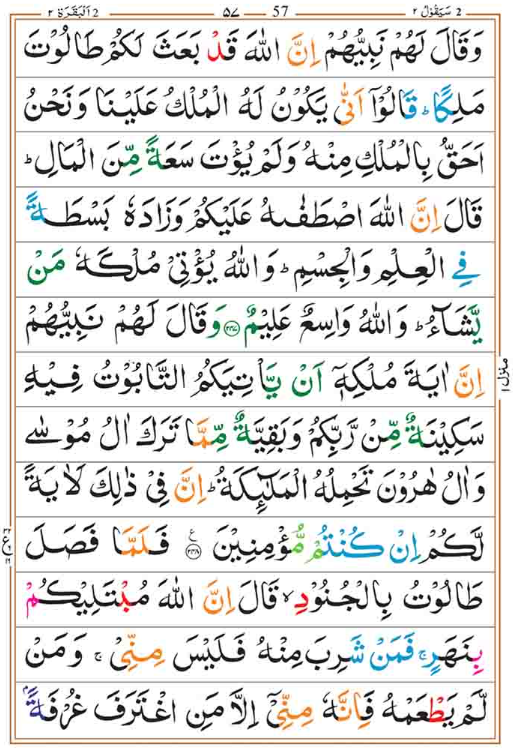 سَيَقُوْلُ ٢ 2 57 — ٥٧ اَلْبَقَرَة ٢ 2
وَقَالَ لَهُمْ نَبِيُّهُمْ اِنَّ اللّٰهَ قَدْ بَعَثَ لَكُمْ طَالُوْتَ
مَلِكًا ؕ قَالُوْۤا اَنّٰى يَكُوْنُ لَهُ الْمُلْكُ عَلَيْنَا وَنَحْنُ
اَحَقُّ بِالْمُلْكِ مِنْهُ وَلَمْ يُؤْتَ سَعَةً مِّنَ الْمَالِ ؕ
قَالَ اِنَّ اللّٰهَ اصْطَفٰىهُ عَلَيْكُمْ وَزَادَهٗ بَسْطَةً
فِى الْعِلْمِ وَالْجِسْمِ ؕ وَاللّٰهُ يُؤْتِىْ مُلْكَهٗ مَنْ
يَّشَآءُ ؕ وَاللّٰهُ وَاسِعٌ عَلِيْمٌ ۝٢٤٧ وَقَالَ لَهُمْ نَبِيُّهُمْ
اِنَّ اٰيَةَ مُلْكِهٖۤ اَنْ يَّاْتِيَكُمُ التَّابُوْتُ فِيْهِ
سَكِيْنَةٌ مِّنْ رَّبِّكُمْ وَبَقِيَّةٌ مِّمَّا تَرَكَ اٰلُ مُوْسٰى
وَاٰلُ هٰرُوْنَ تَحْمِلُهُ الْمَلٰٓئِكَةُ ؕ اِنَّ فِىْ ذٰلِكَ لَاٰيَةً
لَّكُمْ اِنْ كُنْتُمْ مُّؤْمِنِيْنَ ۝٢٤٨ ع فَلَمَّا فَصَلَ
طَالُوْتُ بِالْجُنُوْدِ ۙ قَالَ اِنَّ اللّٰهَ مُبْتَلِيْكُمْ
بِنَهَرٍ ۚ فَمَنْ شَرِبَ مِنْهُ فَلَيْسَ مِنِّىْ ۚ وَمَنْ
لَّمْ يَطْعَمْهُ فَاِنَّهٗ مِنِّىْۤ اِلَّا مَنِ اغْتَرَفَ غُرْفَةًۢ
منزل ١